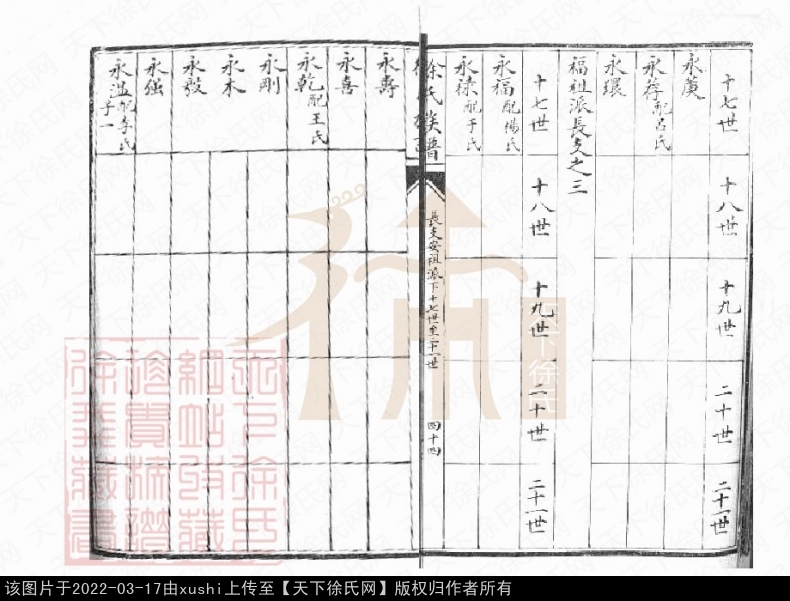 十七世
十八世
十九世
二十世
二十一世
永廣
永荐配吕氏
永環
福祖派長支之三
十七世
十八世
十九世
二十世
二十一世
永福配楊氏
永祿配于氏
徐氏族譜
長支安祖派下十七世至二十一世
四十四
永壽
永喜
永乾配王氏
永剛
永本
永發
永強
永溫配李氏
子一
天下徐氏
该图片于2022-03-17由xushi上传至【天下徐氏网】版权归作者所有